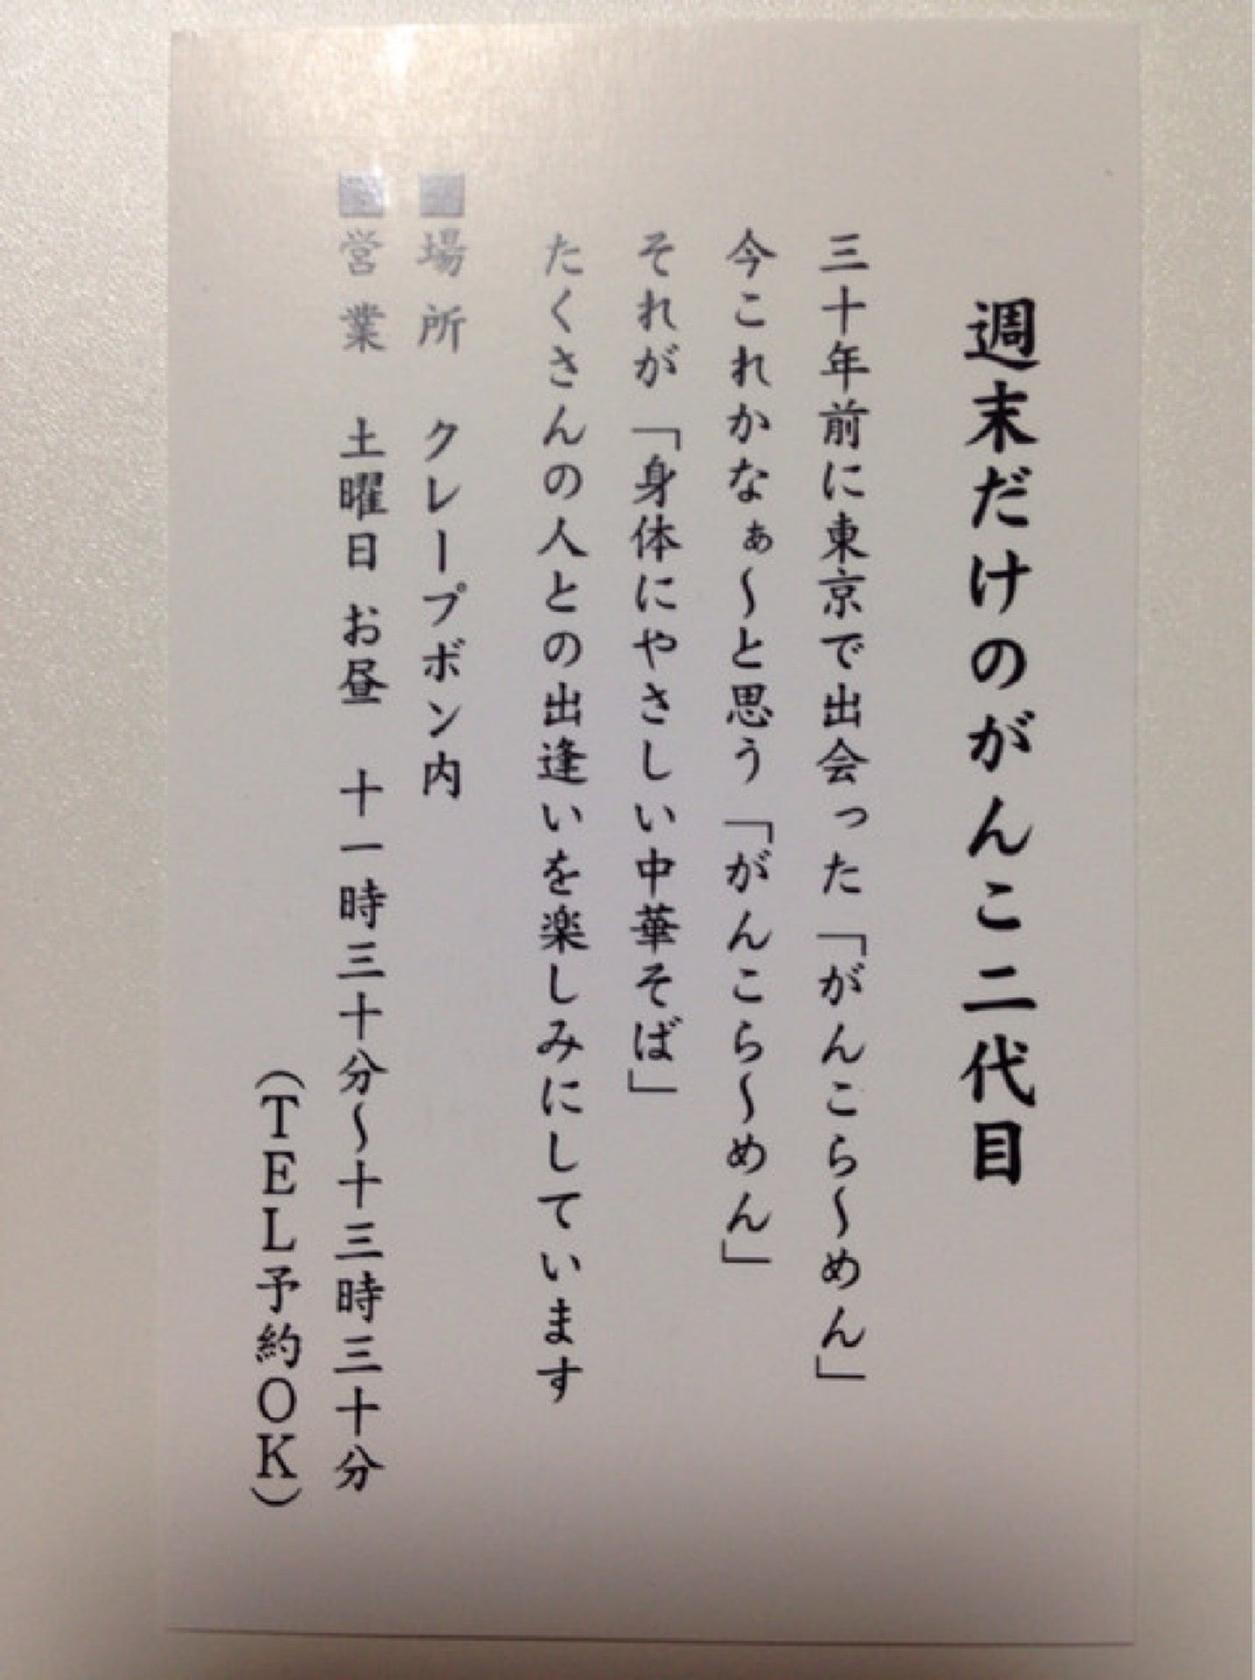 週末だけのがんこ二代目
三十年前に東京で出会った「がんこら～めん」
今これかなぁ～と思う「がんこら～めん」
それが「身体にやさしい中華そば」
たくさんの人との出逢いを楽しみにしています
■場所　クレープボン内
■営業　土曜日 お昼　十一時三十分～十三時三十分
（TEL予約OK）